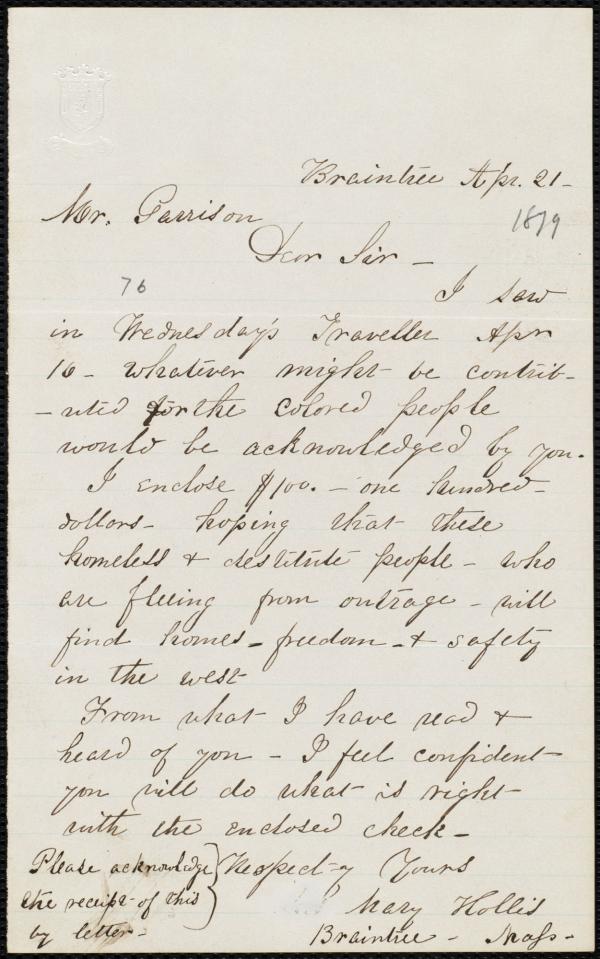 Braintree Apr. 21-
1879
Mr. Garrison
Dear Sir -
76
I saw
in Wednesday's Traveller Apr
16 - whatever might be contrib-
-uted for the colored people
would be acknowledged by you.
I enclose $100. - one hundred
dollars - hoping that these
homeless & destitute people - who
are fleeing from outrage - will
find homes - freedom - & safety
in the west
From what I have read &
heard of you - I feel confident
you will do what is right
with the enclosed check -
Respect-y Yours
Mary Hollis
Braintree - Mass-
Please acknowledge
the receipt of this
by letter -